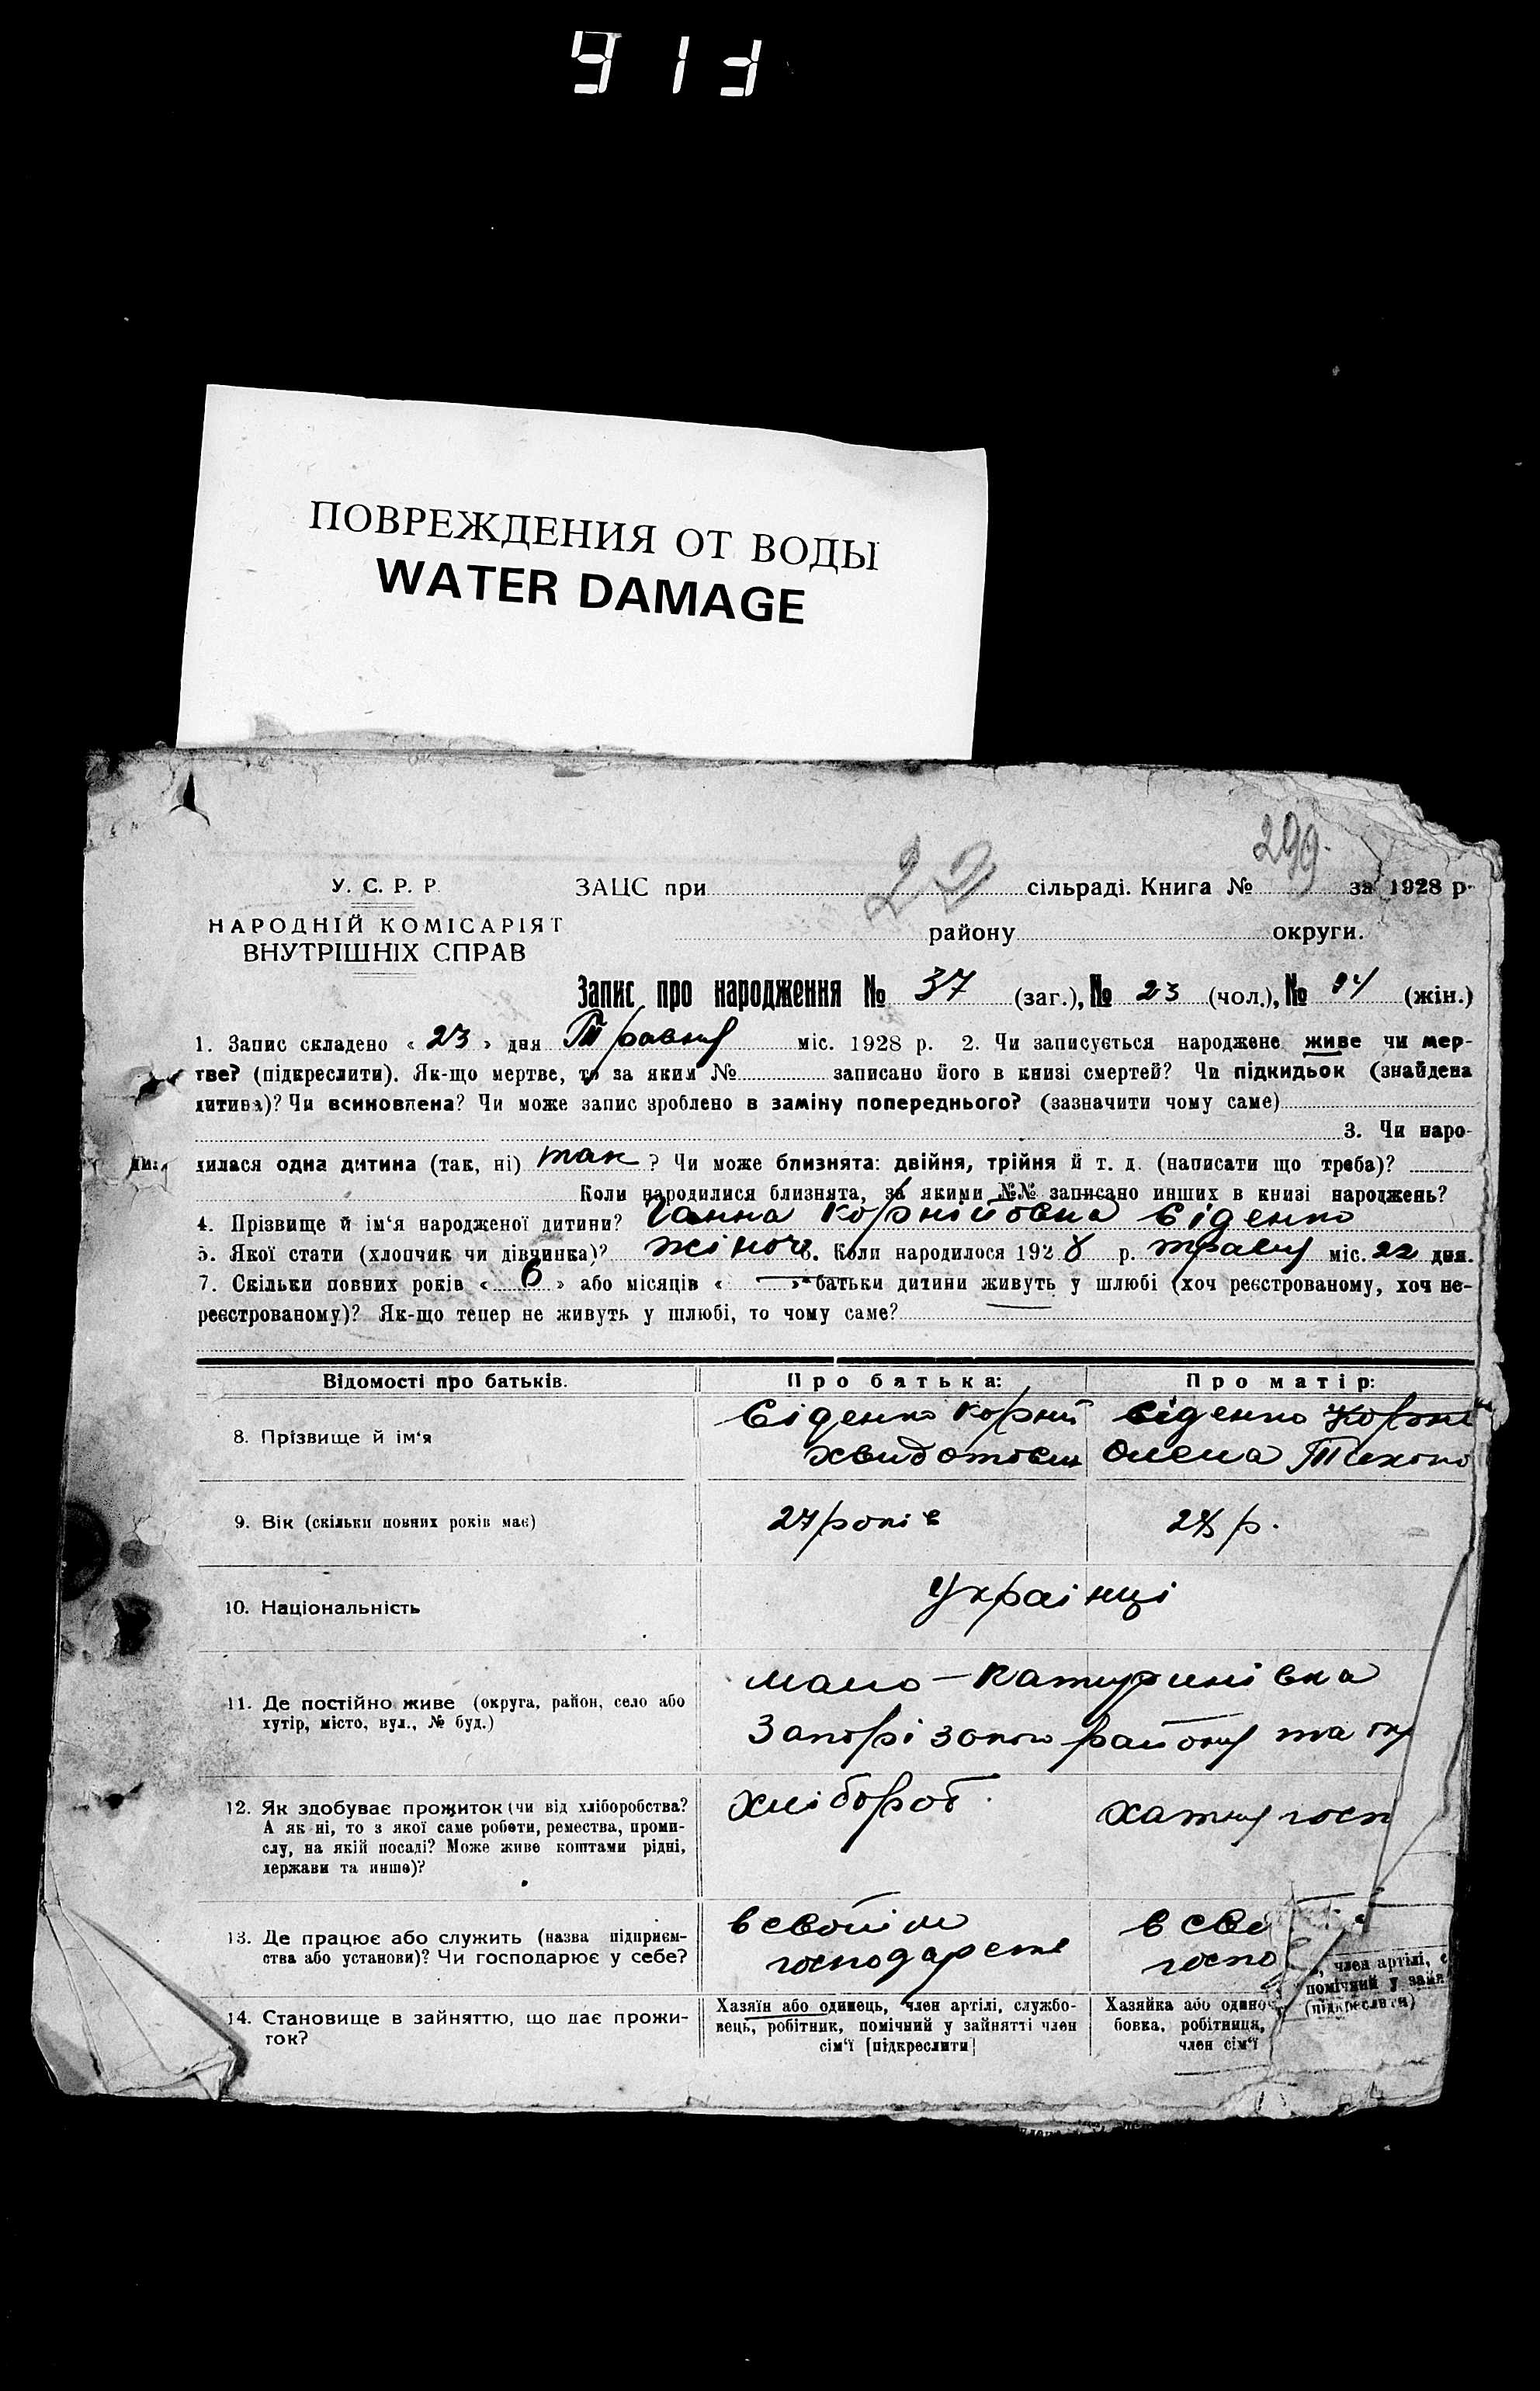 913
ПОВРЕЖДЕНИЯ ОТ ВОДЫ
WATER DAMAGE
299.
22
У. С. Р. Р.
НАРОДНІЙ КОМІСАРІЯТ
ВНУТРІШНІХ СПРАВ
ЗАЦС при сільраді. Книга № за 1928 р.
району округи.
Запис про народження № 37 (заг.), № 23 (чол.), № 14 (жін.)
1. Запис складено « 23 » дня Травня міс. 1928 р. 2. Чи записується народжене живе чи мер-
тве? (підкреслити). Як-що мертве, то за яким № записано його в книзі смертей? Чи підкидьок (знайдена
дитина)? Чи всиновлена? Чи може запис зроблено в заміну попереднього? (зазначити чому саме)
3. Чи наро-
дилася одна дитина (так, ні) так ? Чи може близнята: двійня, трійня й т. д. (написати що треба)?
Коли народилися близнята, за якими №№ записано инших в книзі народжень?
4. Прізвище й ім‘я народженої дитини? Ганна Корнійовна Єіденко
5. Якої стати (хлопчик чи дівчинка)? жіноч 6. Коли народилось 1928 р. травня міс. 22 дня.
7. Скільки повних років « 6 » або місяців « — » батьки дитини живуть у шлюбі (хоч реєстрованому, хоч не-
реєстрованому)? Як-що тепер не живуть у шлюбі, то чому саме?
Відомості про батьків. Про батька: Про матір:
8. Прізвище й ім‘я
Єіденко Корній Єіденко
Хвидотович Олена Тихоно
9. Вік (скільки повних років має) 27 років р.
10. Національність Українці
11. Де постійно живе (округа, район, село або
хутір, місто, вул., № буд.)
мало-Катеринівка
Запорізокого району та ок
12. Як здобуває прожиток (чи від хліборобства?
А як ні, то з якої саме роботи, ремества, проми-
слу, на якій посаді? Може живе коштами рідні,
держави та инше)?
Хлібороб. хатня госп
13. Де працює або служить (назва підприєм-
ства або установи)? Чи господарює у себе?
в своїм в сво
господарстві госпо
14. Становище в зайняттю, що дає прожи-
ток?
Хазяїн або одинець, член артілі, службо-
вець, робітник, помічний у зайнятті член
сім‘ї [підкреслити]
Хазяйка або одиноч
бовка, робітниця,
член сім‘ї
член артілі, с
помічний у зайн
(підкреслити)